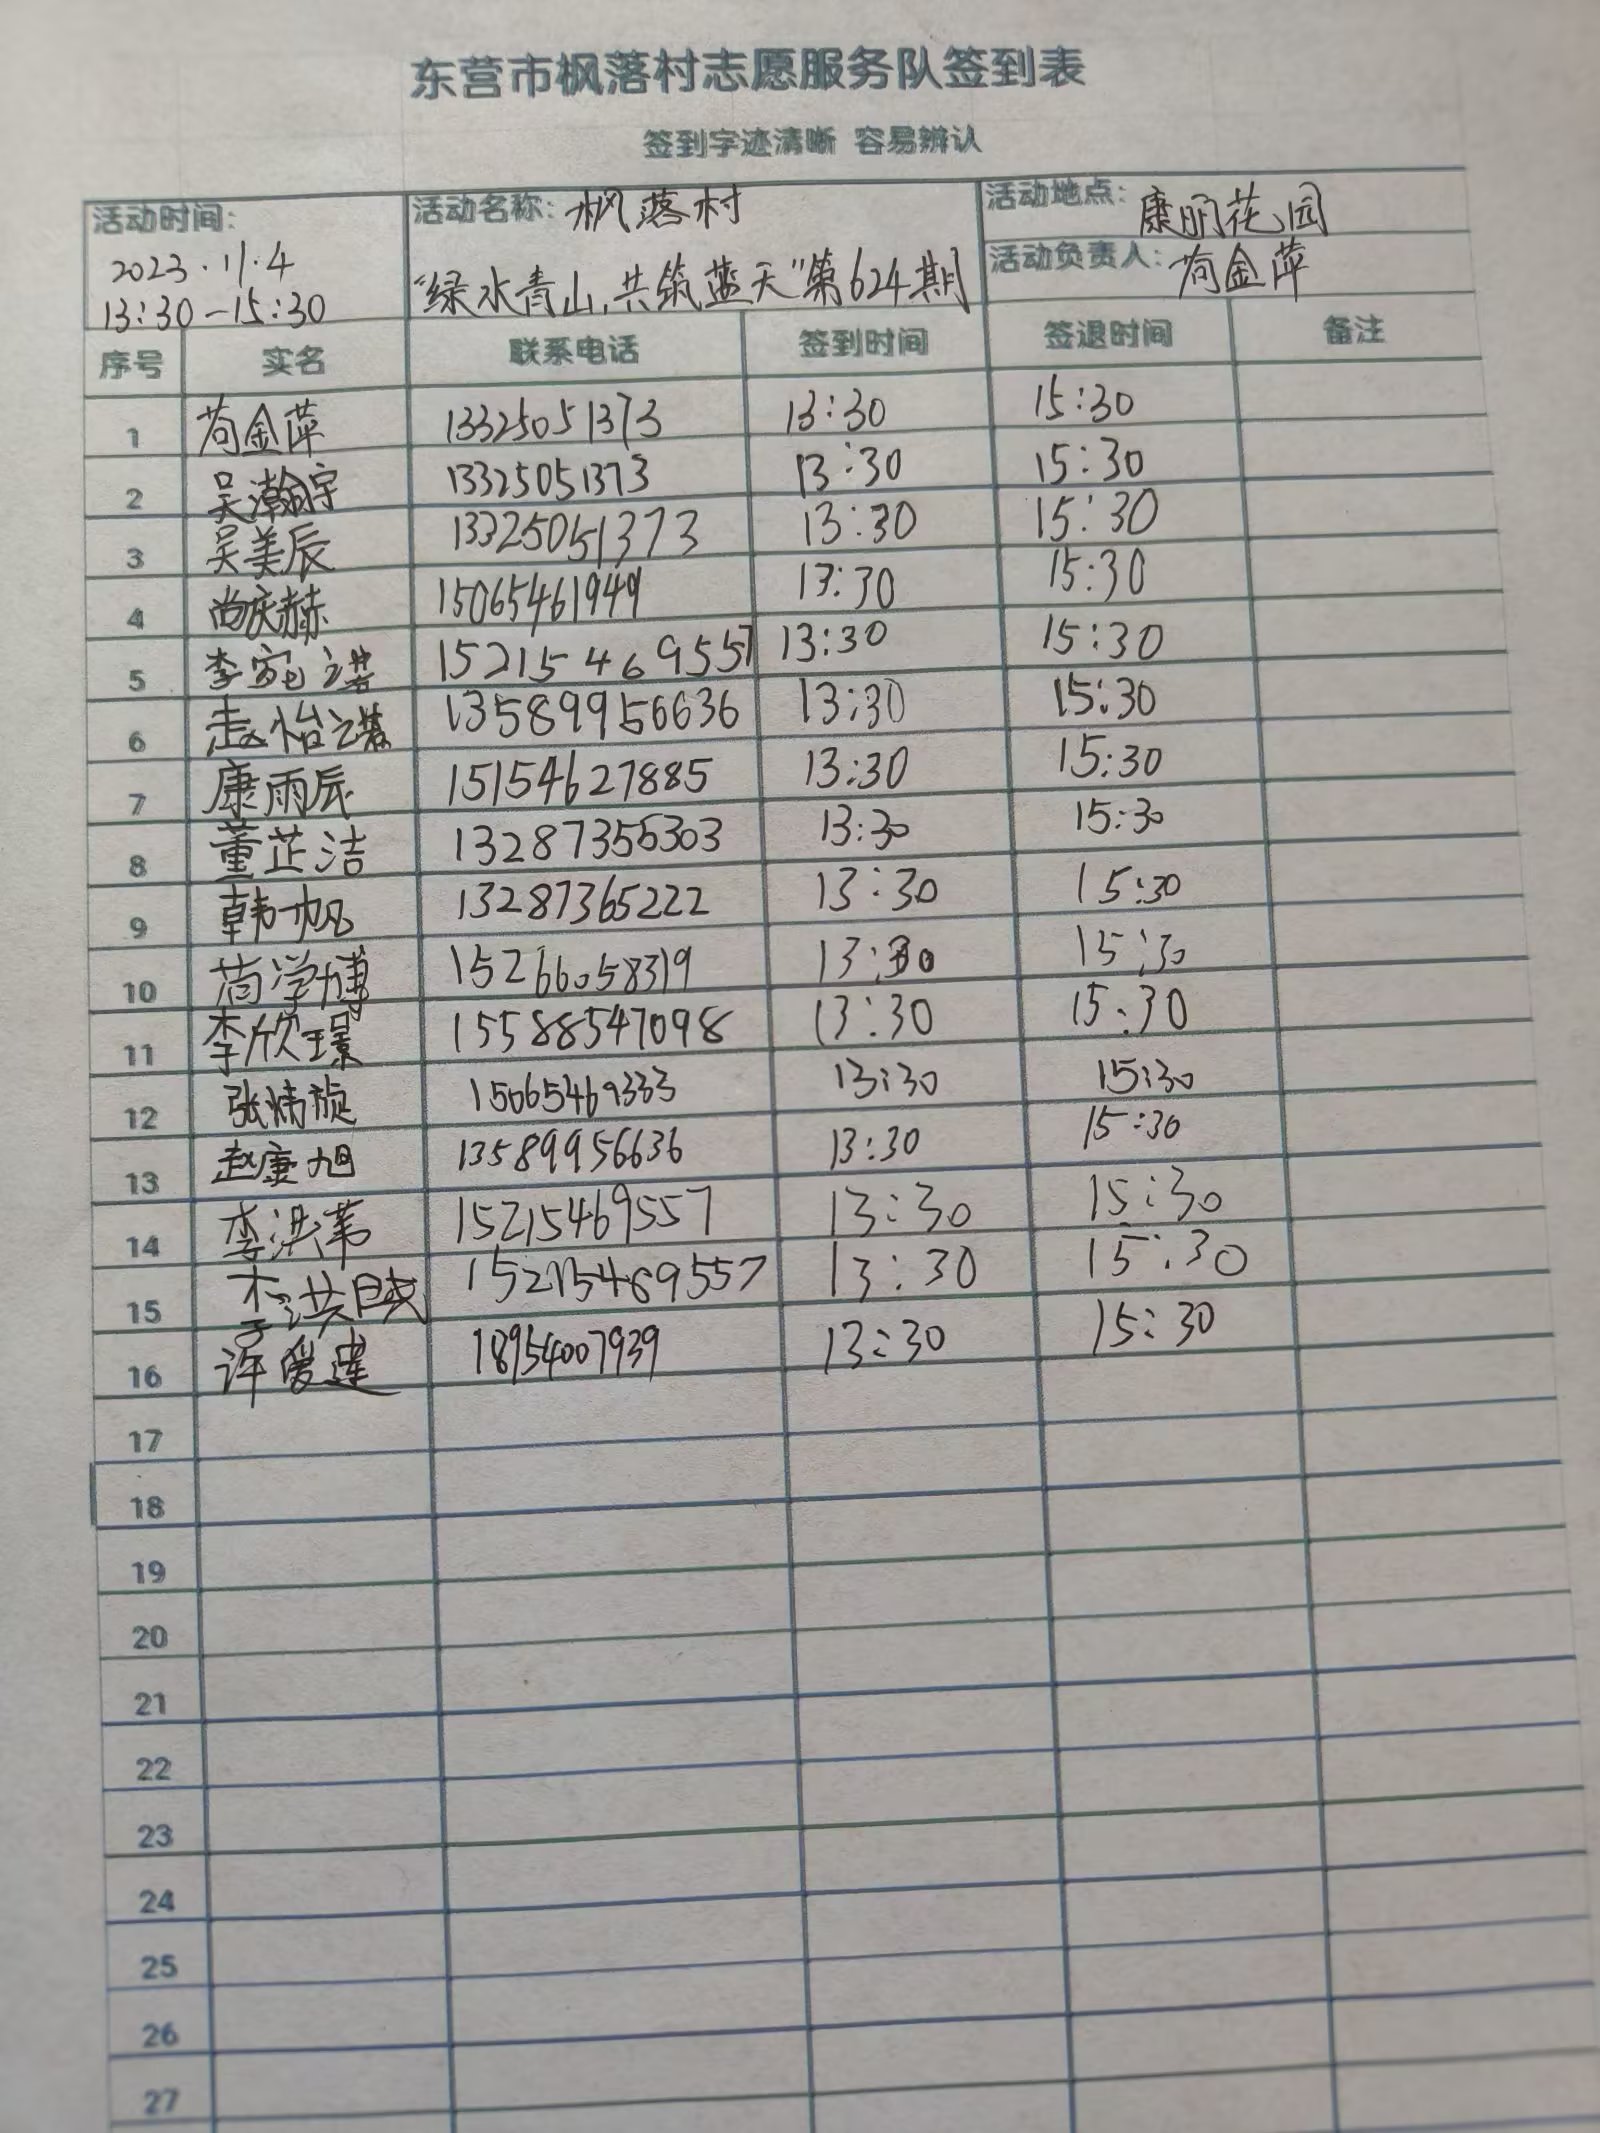 东营市枫落村志愿服务队签到表
签到字迹清晰 容易辨认
活动时间: 2023.11.4 13:30-15:30
活动名称: 枫落村 "绿水青山,共筑蓝天"第624期
活动地点: 康丽花园
活动负责人: 苟金萍
序号 实名 联系电话 签到时间 签退时间 备注
1 苟金萍 13325051373 13:30 15:30
2 吴瀚宇 13325051373 13:30 15:30
3 吴美辰 13325051373 13:30 15:30
4 尚庆赫 15065461949 13:30 15:30
5 李宛诺 15215469557 13:30 15:30
6 赵怡诺 13589956636 13:30 15:30
7 康雨辰 15154627885 13:30 15:30
8 董芷洁 13287355303 13:30 15:30
9 韩帆 13287365222 13:30 15:30
10 苟学博 15266058319 13:30 15:30
11 李欣璟 15588547098 13:30 15:30
12 张炜旋 15065469333 13:30 15:30
13 赵康旭 13589956636 13:30 15:30
14 李洪苇 15215469557 13:30 15:30
15 李洪 15215469557 13:30 15:30
16 许爱莲 18954007939 13:30 15:30
17
18
19
20
21
22
23
24
25
26
27